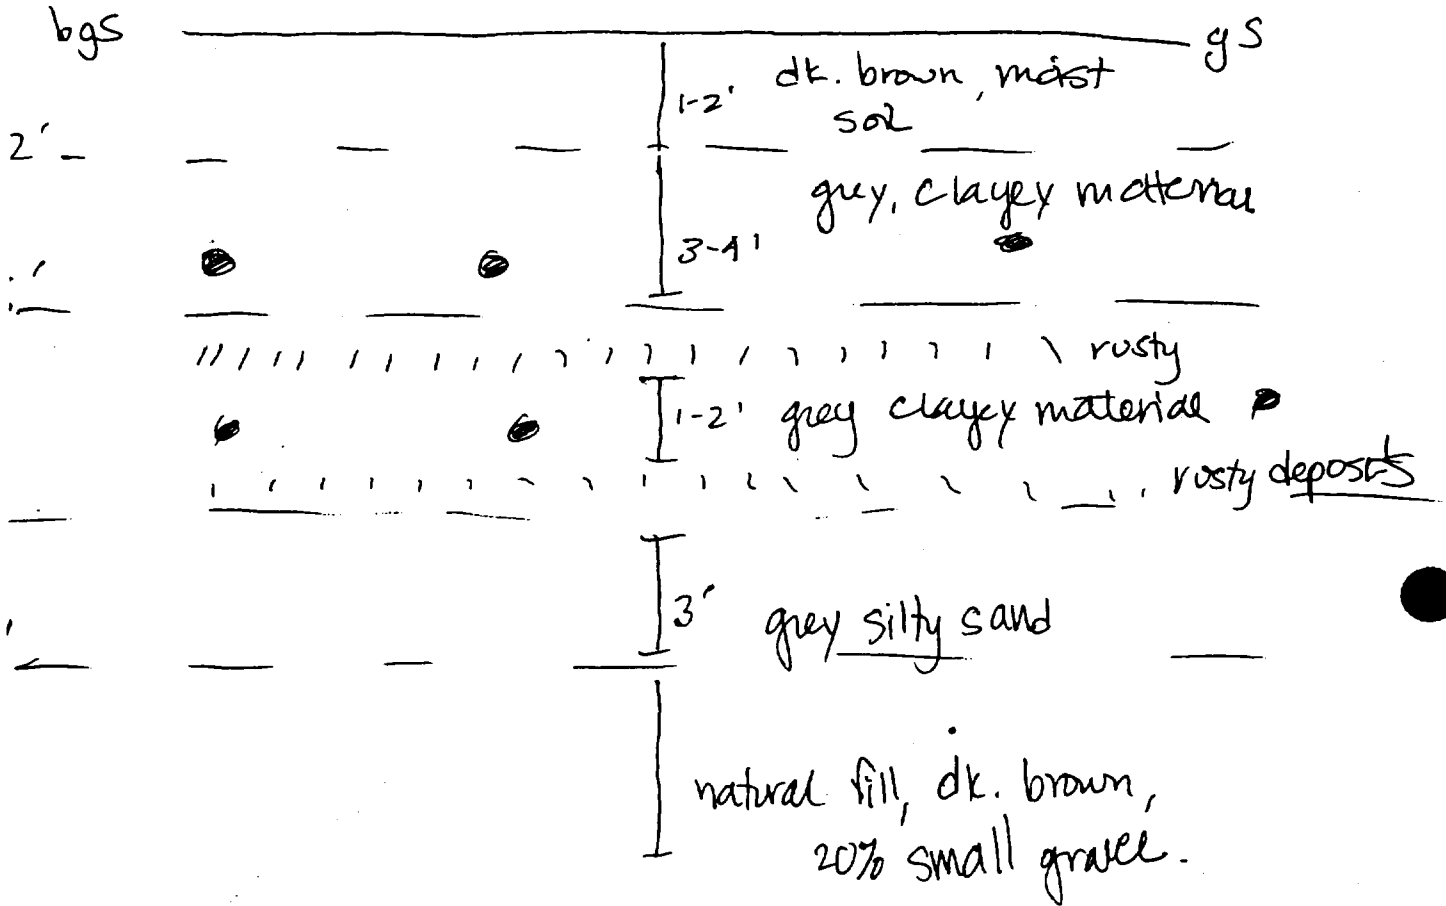 bgs gs
1-2' dk. brown, moist
soil
2'
grey, clayey material
3-4'
rusty
1-2' grey clayey material
rusty deposits
3' grey silty sand
natural fill, dk. brown,
20% small gravel.